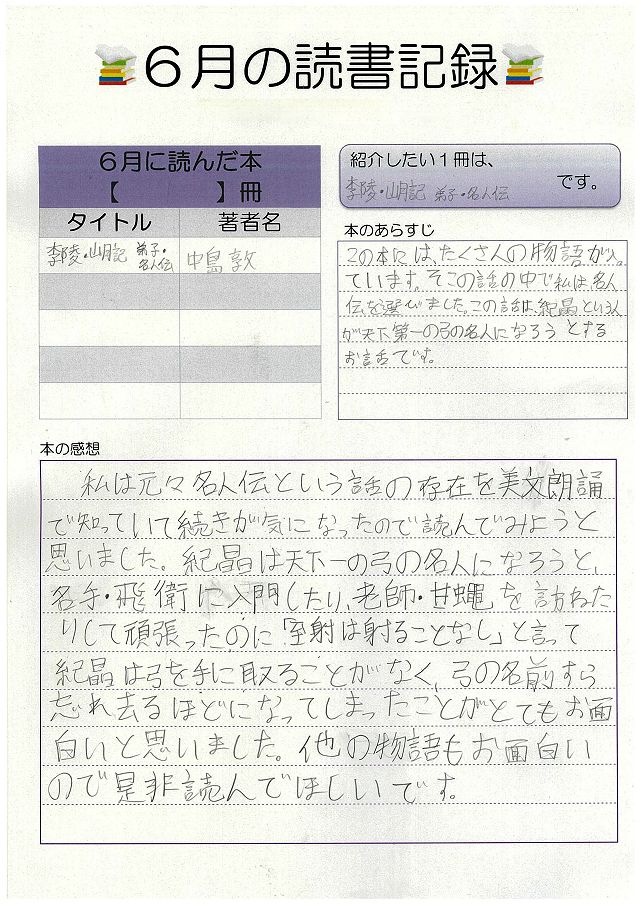 ６月の読書記録
６月に読んだ本
【　　　　】冊
タイトル　著者名
李陵・山月記　弟子・名人伝　中島 敦
紹介したい１冊は、
李陵・山月記　弟子・名人伝　です。
本のあらすじ
この本には、たくさんの物語が入っ
ています。そこの話の中で私は名人
伝を選びました。この話は、紀昌という人
が天下第一の弓の名人になろうとする
お話です。
本の感想
私は元々名人伝という話の存在を美文朗誦
で知っていて続きが気になったので読んでみようと
思いました。紀昌は天下一の弓の名人になろうと、
名手・飛衛に入門したり、老師・甘蠅を訪ねた
りして頑張ったのに「至射は射ることなし」と言って
紀昌は弓を手に取ることがなく、弓の名前すら
忘れ去るほどになってしまったことがとてもお面
白いと思いました。他の物語もお面白い
ので是非読んでほしいです。